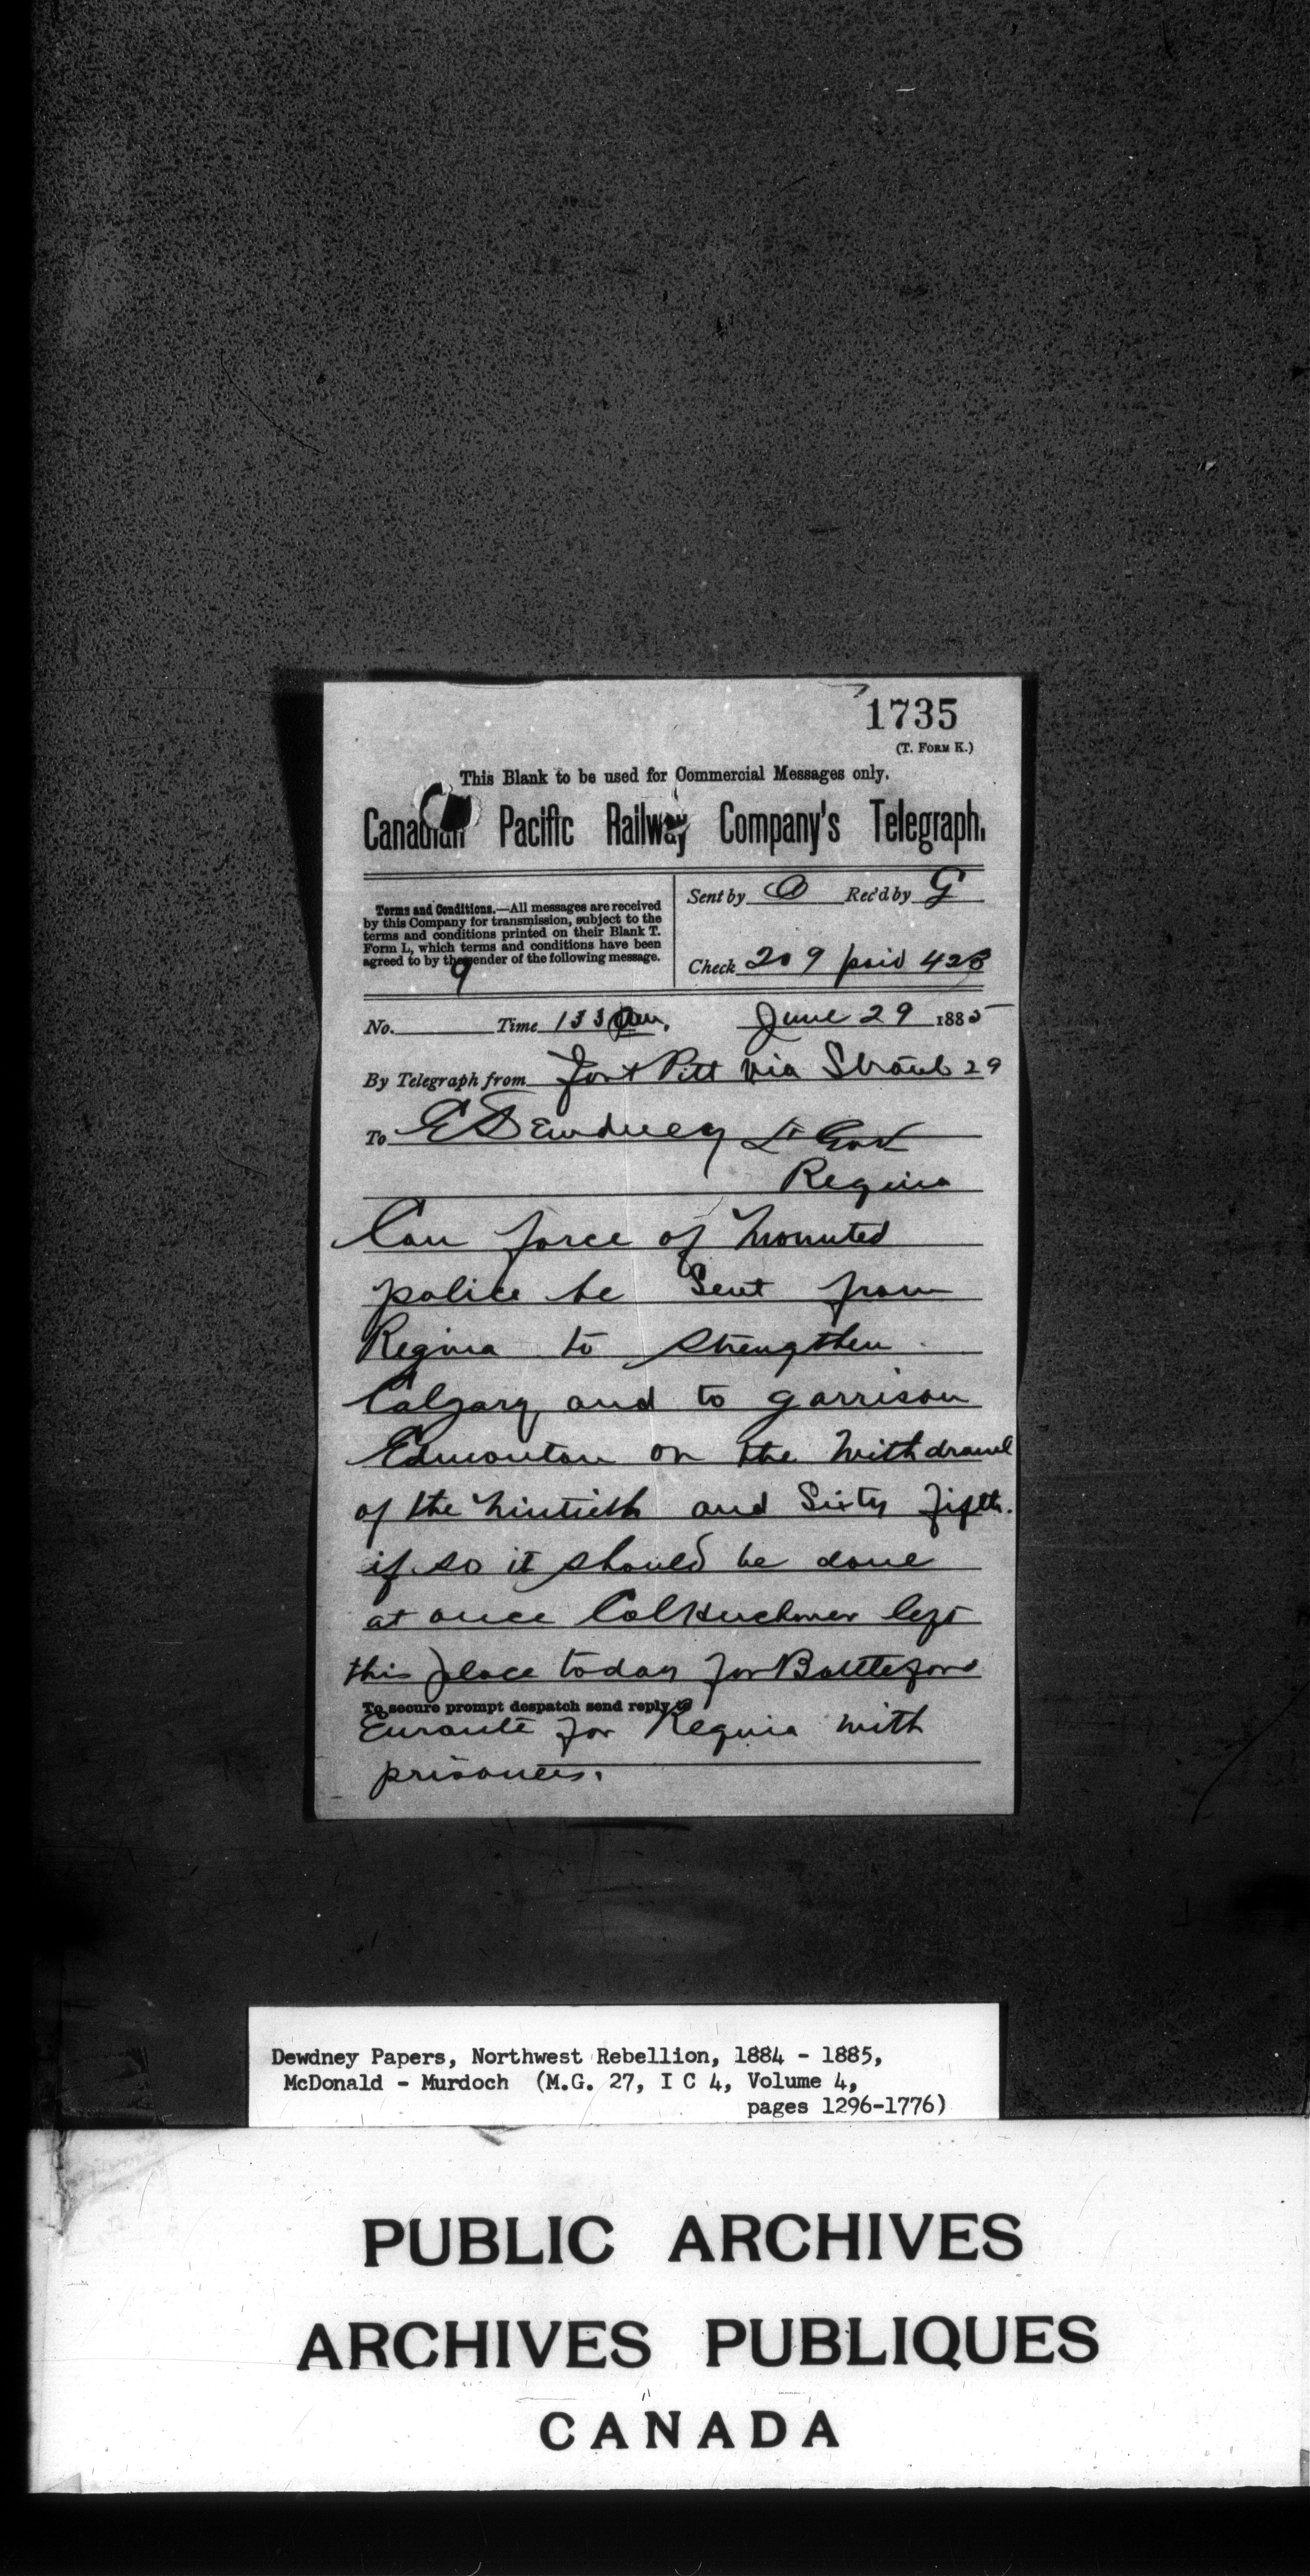 1735
(T. FORM K.)
This Blank to be used for Commercial Messages only.
Canadian Pacific Railway Company's Telegraph.
Terms and Conditions.—All messages are received
by this Company for transmission, subject to the
terms and conditions printed on their Blank T.
Form L, which terms and conditions have been
agreed to by the sender of the following message.
9
Sent by O Rec'd by G
Check 209 paid 423
No. Time 133 am. June 29 1885
By Telegraph from Fort Pitt via 29
To E Dewdney Lt Gov
Regina
Can force of mounted
police be sent from
Regina to strengthen
Calgary and to garrison
Edmonton on the withdrawl
of the nintieth and Sixty fifth.
if so it should be done
at once Col left
this place today for Battleford
To secure prompt despatch send reply to
Enroute for Regina with
prisoners.
Dewdney Papers, Northwest Rebellion, 1884 - 1885,
McDonald - Murdoch (M.G. 27, I C 4, Volume 4,
pages 1296-1776)
PUBLIC ARCHIVES
ARCHIVES PUBLIQUES
CANADA